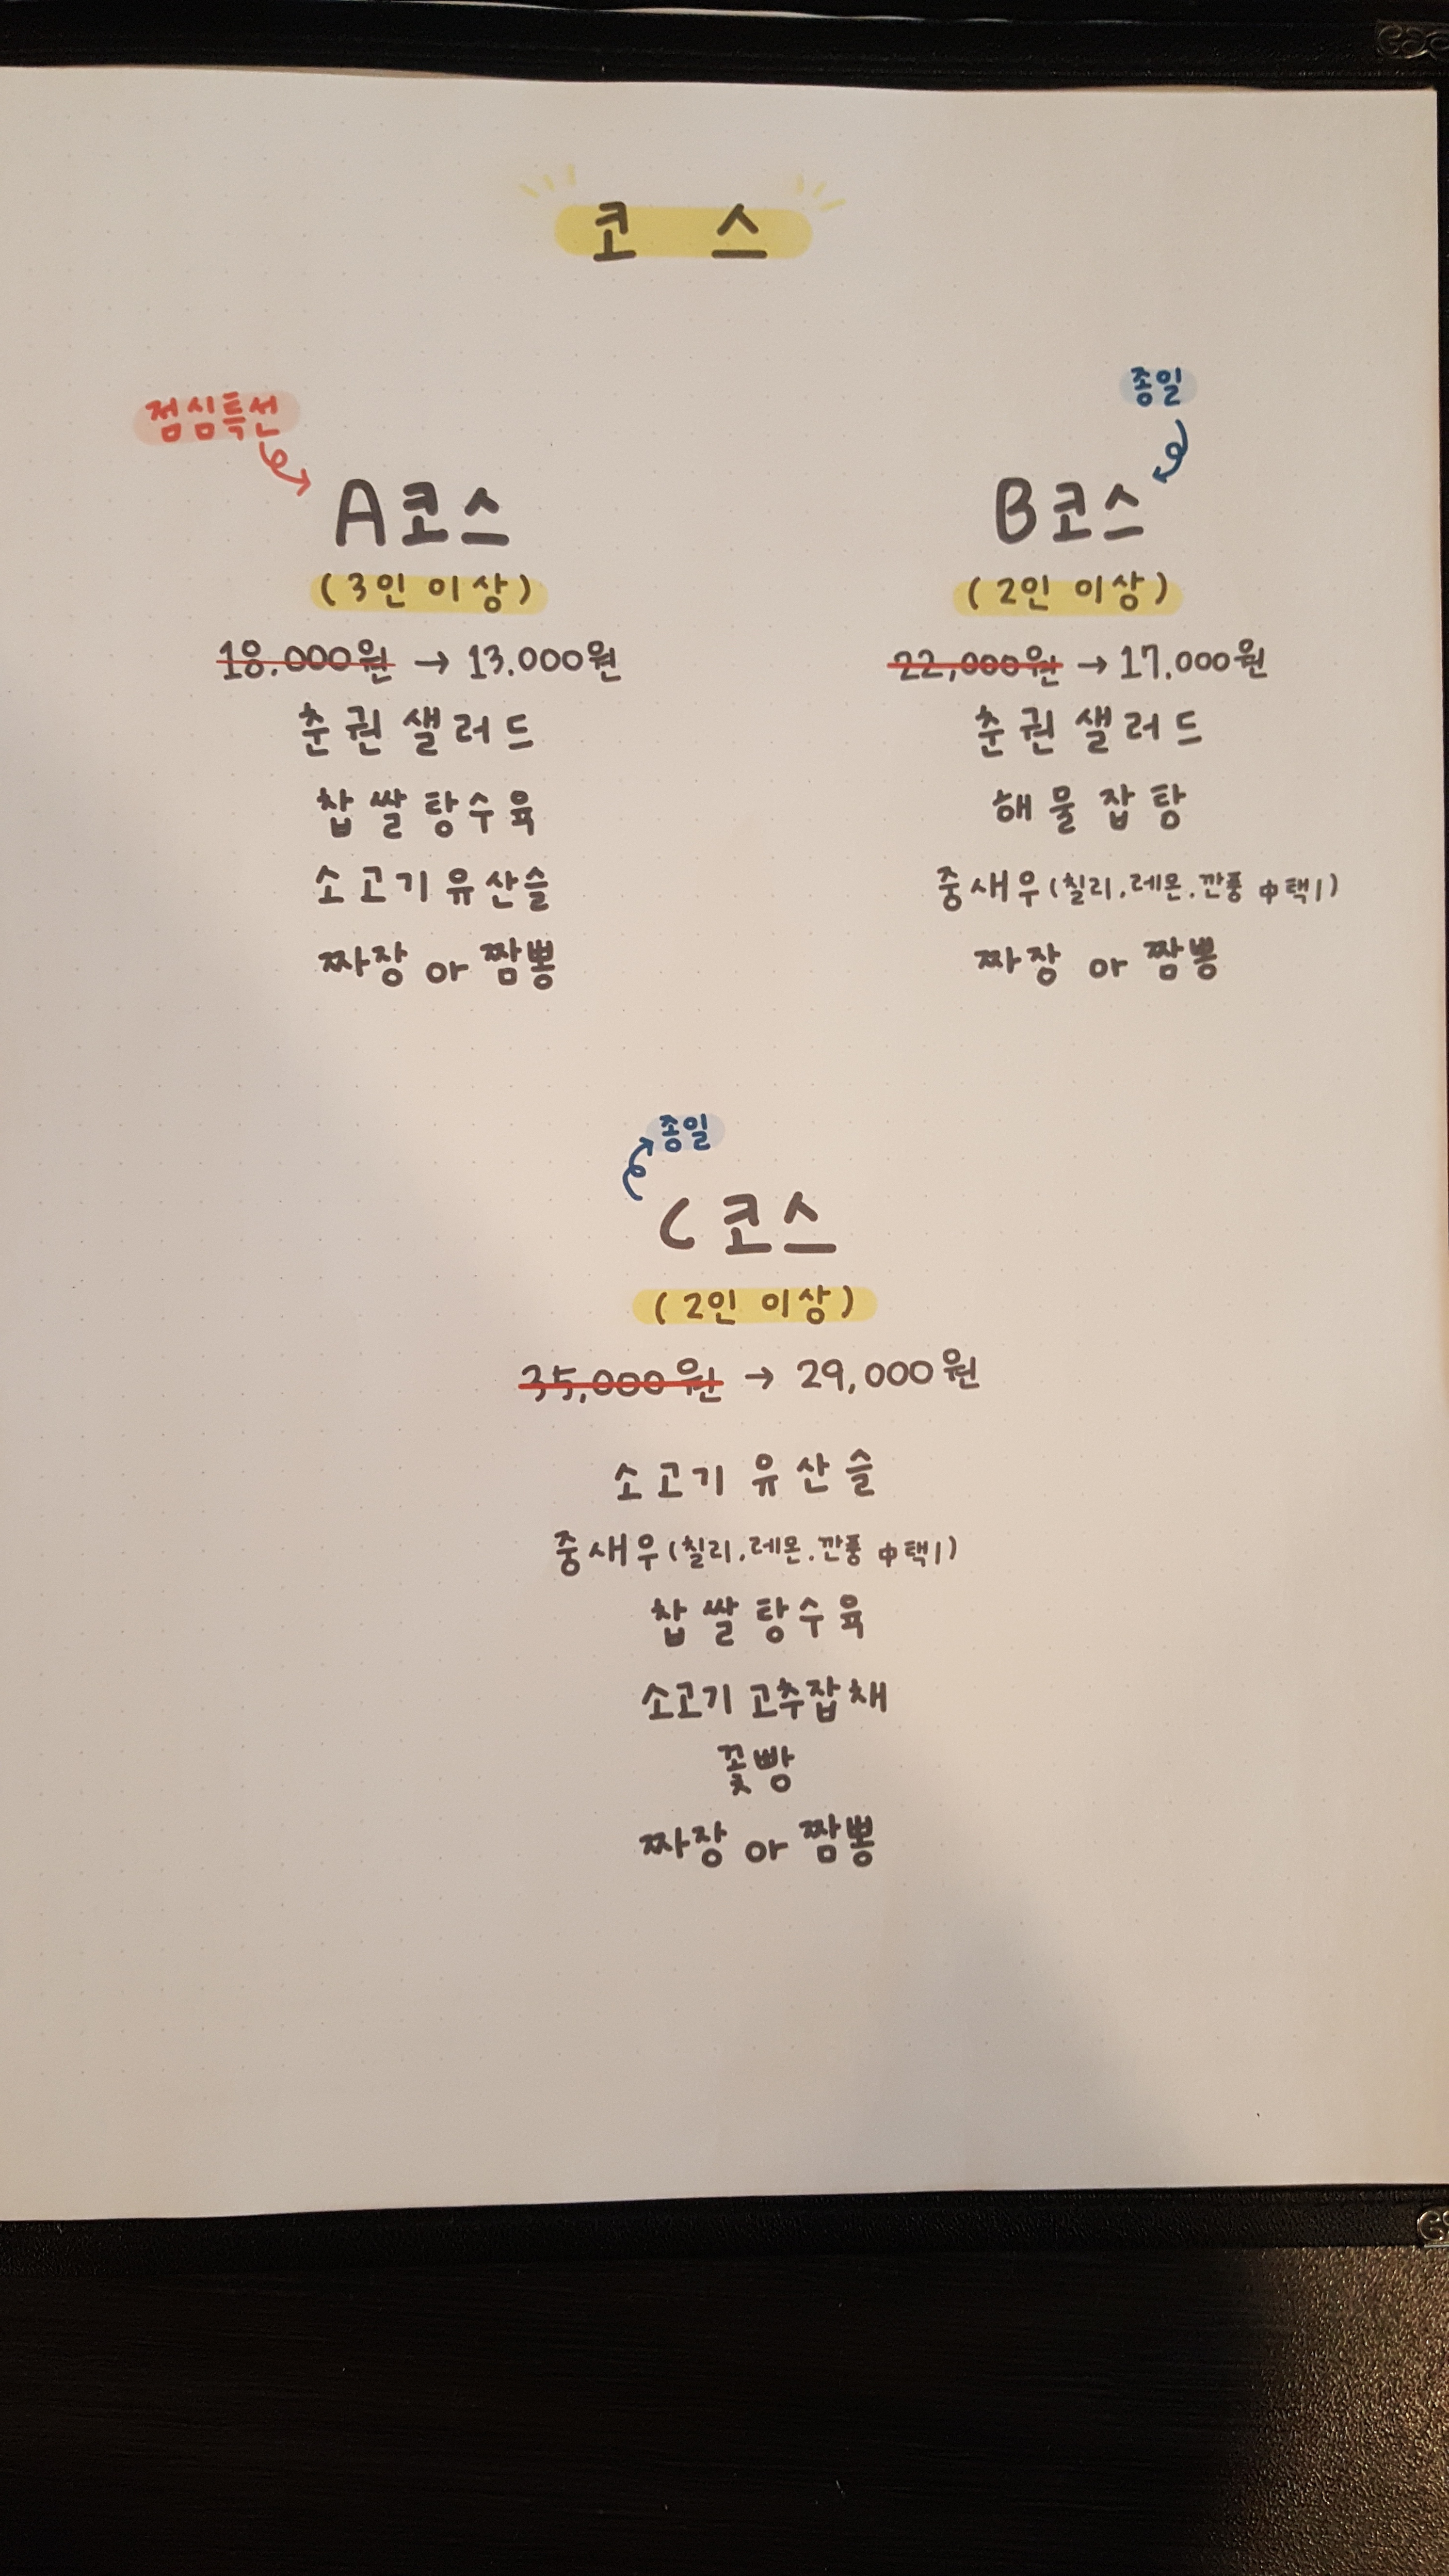 코 스
점심특선
A코스
(3인 이상)
18.000원 → 13.000원
춘권샐러드
찹쌀탕수육
소고기유산슬
짜장 or 짬뽕
종일
B코스
(2인 이상)
22,000원 → 17.000원
춘권샐러드
해물잡탕
중새우(칠리.레몬.깐풍 中택1)
짜장 or 짬뽕
종일
C코스
(2인 이상)
35,000원 → 29,000원
소고기 유산슬
중새우(칠리.레몬.깐풍 中택1)
찹쌀탕수육
소고기 고추잡채
꽃빵
짜장 or 짬뽕